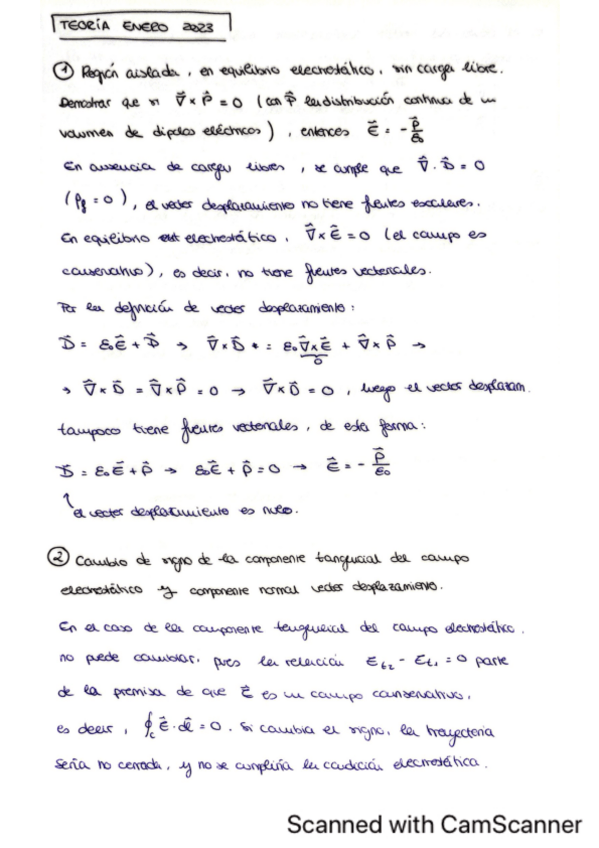 TEORÍA ENERO 2023
① Región aislada, en equilibrio electrostático, sin carga libre.
Demostrar que si ∇⃗ × P⃗ = 0 (con P⃗ la distribución continua de un
volumen de dipolos eléctricos), entonces E⃗ = - P⃗/ε₀
En ausencia de cargas libres, se cumple que ∇⃗ · D⃗ = 0
(ρf = 0), el vector desplazamiento no tiene fuentes escalares.
En equilibrio electrostático, ∇⃗ × E⃗ = 0 (el campo es
conservativo), es decir, no tiene fuentes vectoriales.
Por la definición de vector desplazamiento:
D⃗ = ε₀E⃗ + P⃗ → ∇⃗ × D⃗ = ε₀ ∇⃗ × E⃗ + ∇⃗ × P⃗ →
0
→ ∇⃗ × D⃗ = ∇⃗ × P⃗ = 0 → ∇⃗ × D⃗ = 0, luego el vector desplazam.
tampoco tiene fuentes vectoriales, de esta forma:
D⃗ = ε₀E⃗ + P⃗ → ε₀E⃗ + P⃗ = 0 → E⃗ = - P⃗/ε₀
el vector desplazamiento es nulo.
② Cambio de signo de la componente tangencial del campo
electrostático y componente normal vector desplazamiento.
En el caso de la componente tangencial del campo electrostático,
no puede cambiar, pues la relación Et₂ - Et₁ = 0 parte
de la premisa de que E⃗ es un campo conservativo,
es decir, ∮c E⃗ · dl⃗ = 0. Si cambia el signo, la trayectoria
sería no cerrada, y no se cumpliría la condición electrostática.
Scanned with CamScanner